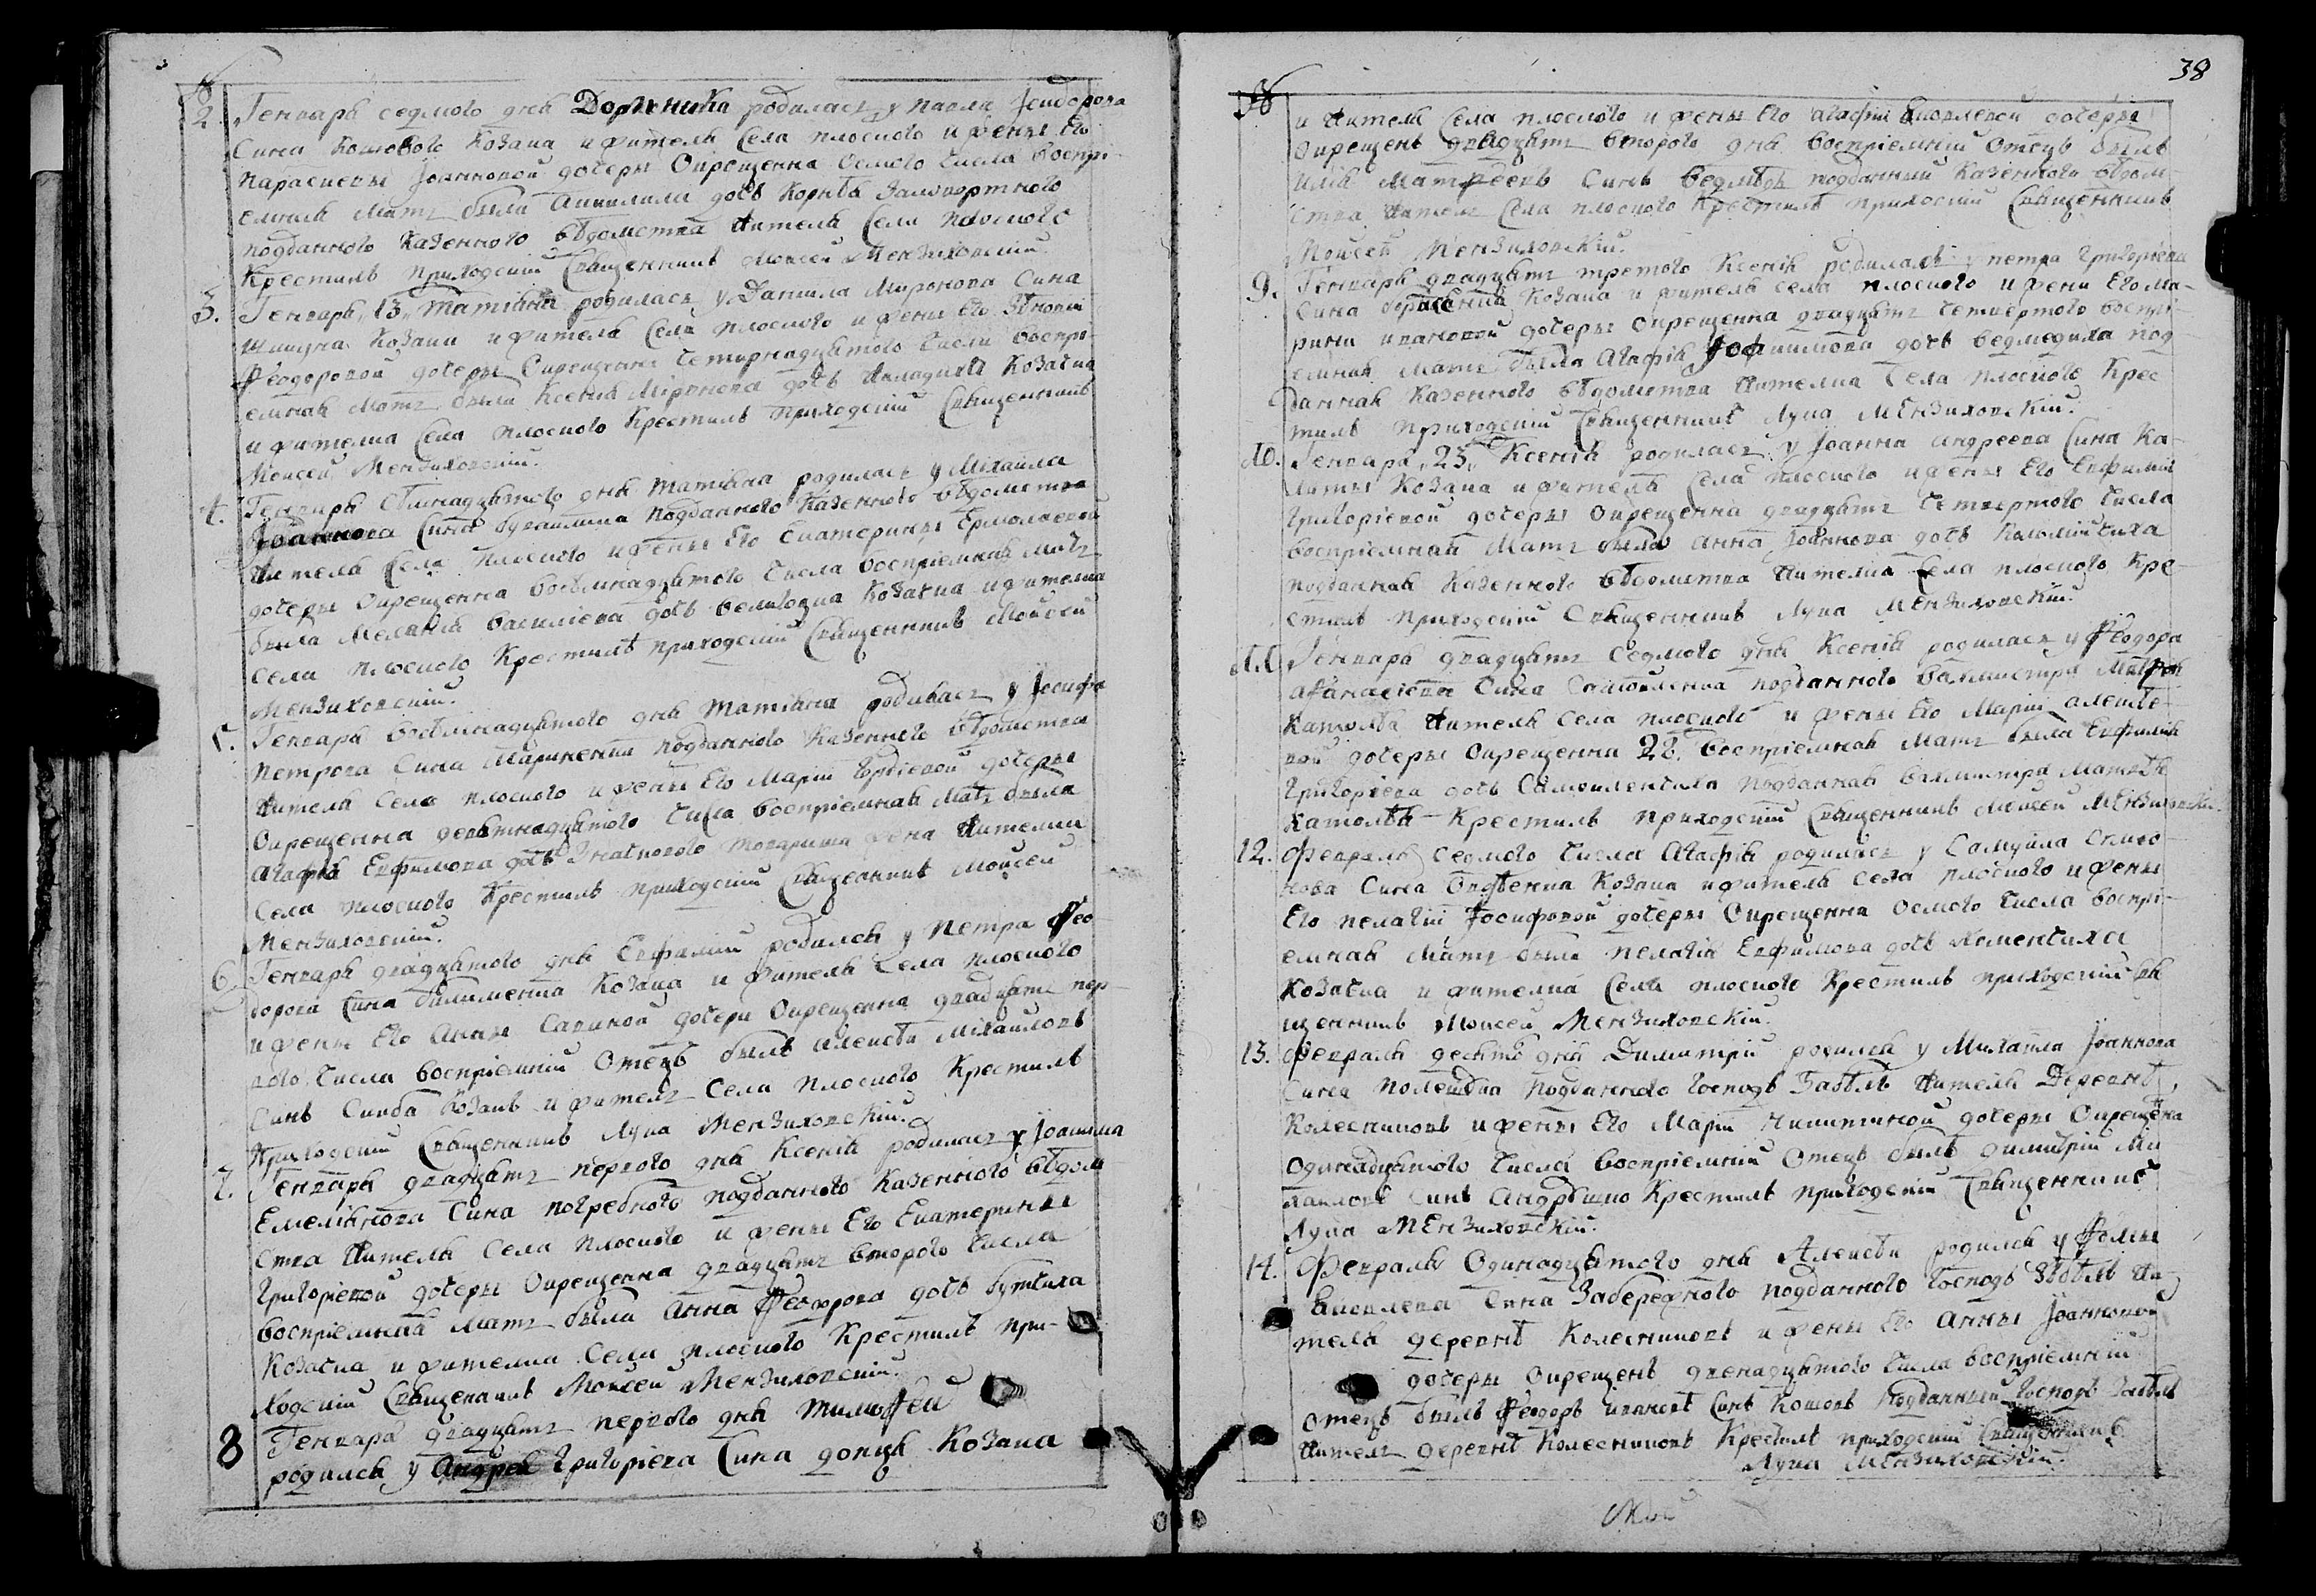 38
№
2. Генваря седмого дня Домникиа родилась у павла Ісидорова
Сина Кошового Козака и жителя Села плоского и жены Его
параскевы Іоанновой дочеры Окрещенна Осмого числа воспрі-
емная Мать была Акилина дочь Корнѣа
подданного Казенного вѣдомства жителя Села плоского
Крестилъ приходскій Священникъ Моисей Мензиховскій.
3. Генваря „13„ Татіяна родилась у Даниила Миронова Сина
Козака и жителя Села плоского и жены Его Зѣновіи
Феодоровой дочеры Окрещенна Четирнадцятого Числа воспрі-
емная Мать была Ксенія Міронова дочь Козачка
и жителка Села плоского Крестилъ приходскій Священникъ
Моисей Мензиховскій.
4. Генваря дня Татіяна родилась у Михаила
Іоаннова Сина подданного Казенного вѣдомства
жителя Села плоского и жены Его Екатерины Ермолаевой
дочеры Окрещенна восѣмнадцятого Числа воспріемная Мать
была Меланія василіева дочь Козачка и жителка
Села плоского Крестилъ приходскій Священникъ Моисей
Мензиховскій.
5. Генваря восѣмнадцятого дня Татіяна родилась у Іосифа
Петрова Сина Мариненка подданного Казенного вѣдомства
жителя Села плоского и жены Его Маріи дочеры
Окрещенна девятнадцятого Числа воспріемная Мать была
Агафія Евфимова дочь Значкового товариша жена жителка
Села плоского Крестилъ приходскій Священникъ Моисей
Мензиховскій.
6. Генваря двадцятого дня Евфимій родился у Петра Фео-
дорова Сина Козака и жителя Села плоского
и жены Его Анны Савиной дочери Окрещенна двадцять пер-
вого Числа воспріемній Отецъ былъ Алексѣй Міхайловъ
Синъ Скиба Козакъ и житель Села плоского Крестилъ
Приходскій Священникъ Лука Мензиховскій.
7. Генваря двадцять первого дня Ксенія родилась у Іоакима
Емеліянова Сина погребного подданного Казенного вѣдом
ства жителя Села плоского и жены Его Екатерины
Григоріевой дочеры Окрещенна двадцять второго Числа
воспріемная Мать была Анна Феодорова дочь
Козачка и жителка Села плоского Крестилъ при-
ходскій Священникъ Моисей Мензиховскій.
8 Генваря двадцять первого дня Тимофей
родился у Андрея Григоріева Сина донця Козака
№
и жителя Села плоского и жены Его Агафіи Яковлевой дочеры
Окрещенъ двадцять второго дня воспріемній Отецъ былъ
Илія Матфеевъ Синъ ведмѣдь подданный Казенного вѣдом
ства житель Села плоского Крестилъ приходскій Священникъ
Моисей Мензиховскій.
9. Генваря двадцять третого Ксенія родилась у петра Григоріева
Сина Козака и жителя села плоского и жени Его Ма-
рини ивановой дочеры Окрещенна двадцять четвертого воспрі-
емная Мать была Агафія Іоакимова дочь ведмедиха под
данная Казенного вѣдомства жителка Села плоского Крес
тилъ приходскій Священникъ Лука Мензиховскій.
10. Генваря „23„ Ксенія родилась у Іоанна Андреева Сина Ка-
литы Козака и жителя Села плоского и жены Его Евфиміи
Григоріевой дочеры Окрещенна двадцять четвертого Числа
воспріемная Мать была Анна Іоаннова дочь Коломійчиха
подданная Казенного вѣдомства жителка Села плоского Кре-
стилъ приходскій Священникъ Лука Мензиховскій.
11. Генваря двадцять Седмого дня Ксенія родилась у Феодора
Афанасіева Сина Самойленка подданного
жителя Села плоского и жены Его Маріи алексѣе-
вой дочеры Окрещенна 28. воспріемная Мать была Евфимія
Григоріева дочь Самойленчиха подданная
Крестилъ приходскій Священникъ Моисей Мензиховскій
12. Февраля Седмого Числа Агафія родилась у Самуила
Сина Козака и жителя села плоского и жены
Его пелагіи Іосифовой дочеры Окрещенна Осмого Числа воспрі-
емная Мать была пелагія Евфимова дочь Клеменчиха
Козачка и жителка Села плоского Крестилъ приходскій Свя
щенникъ Моисей Мензиховскій.
13. Февраля десято дня Димитрій родился у Михаила Іоаннова
Сина подданного Господъ жителя Деревнѣ
Колесниковъ и жены Его Маріи Никитиной дочеры Окрещена
Одинадцятого Числа воспріемній Отецъ былъ Димитрій Ми
хайловъ Синъ Андрѣйшко Крестилъ приходскій Священникъ
Лука Мензиховскій.
14. Февраля Одинадцятого дня Алексѣй родился у Фомы
Яковлева Сина Забережного подданного Господъ жи-
теля деревнѣ Колесниковъ и жены Его Анны Іоанновой
дочеры Окрещенъ двенадцятого Числа воспріемній
Отецъ былъ Феодоръ ивановъ Синъ подданный Господъ
житель деревнѣ Колесниковъ Крестилъ приходскій Священникъ
Лука Мензиховскій.